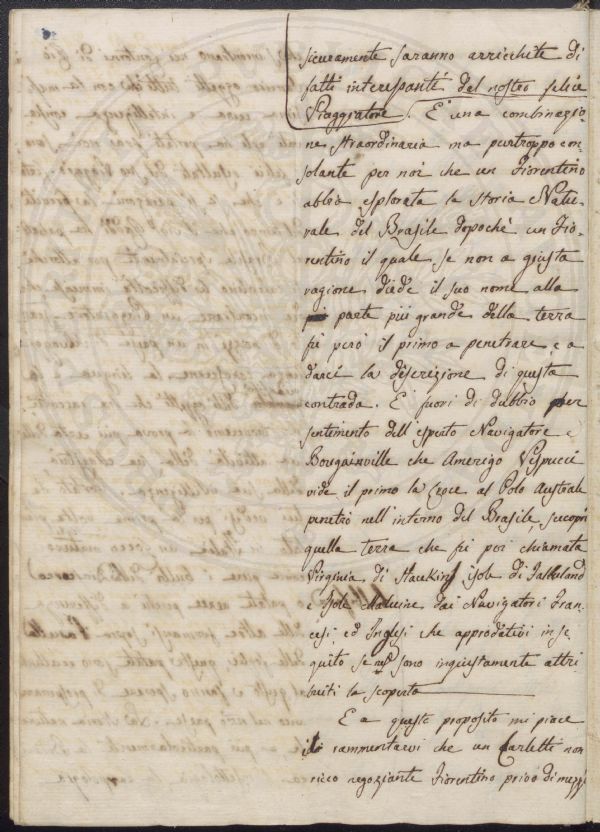 sicuramente saranno arricchite di
fatti interessanti del nostro felice
Viaggiatore. È una combinazio-
ne straordinaria ma purtroppo con-
solante per noi che un Fiorentino
abbia esplorata la storia Natu-
rale del Brasile dopochè un Fio-
rentino il quale se non a giusta
ragione diede il suo nome alla
parte più grande della terra
fù però il primo a penetrare e a
darci la descrizione di questa
contrada. È fuori di dubbio per
sentimento dell'esperto Navigatore
Bougainville che Amerigo Vespucci
vide il primo la Croce al Polo Australe
penetrò nell'interno del Brasile, scoprì
quella terra che fù poi chiamata
Virginia di Hawkins Isole di Falkland
e Isole Maluine dai Navigatori Fran-
cesi, ed Inglesi che approdativi in se
guito se ne sono ingiustamente attri
buiti la scoperta
E a questo proposito mi piace
di rammentarvi che un Carletti non
ricco negoziante Fiorentino privo di mezzi